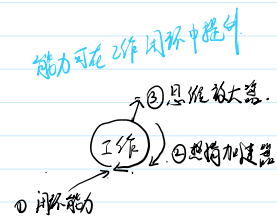 能力可在工作闭环中提升
③思维放大器.
工作
②燃情加速器
①闭环能力